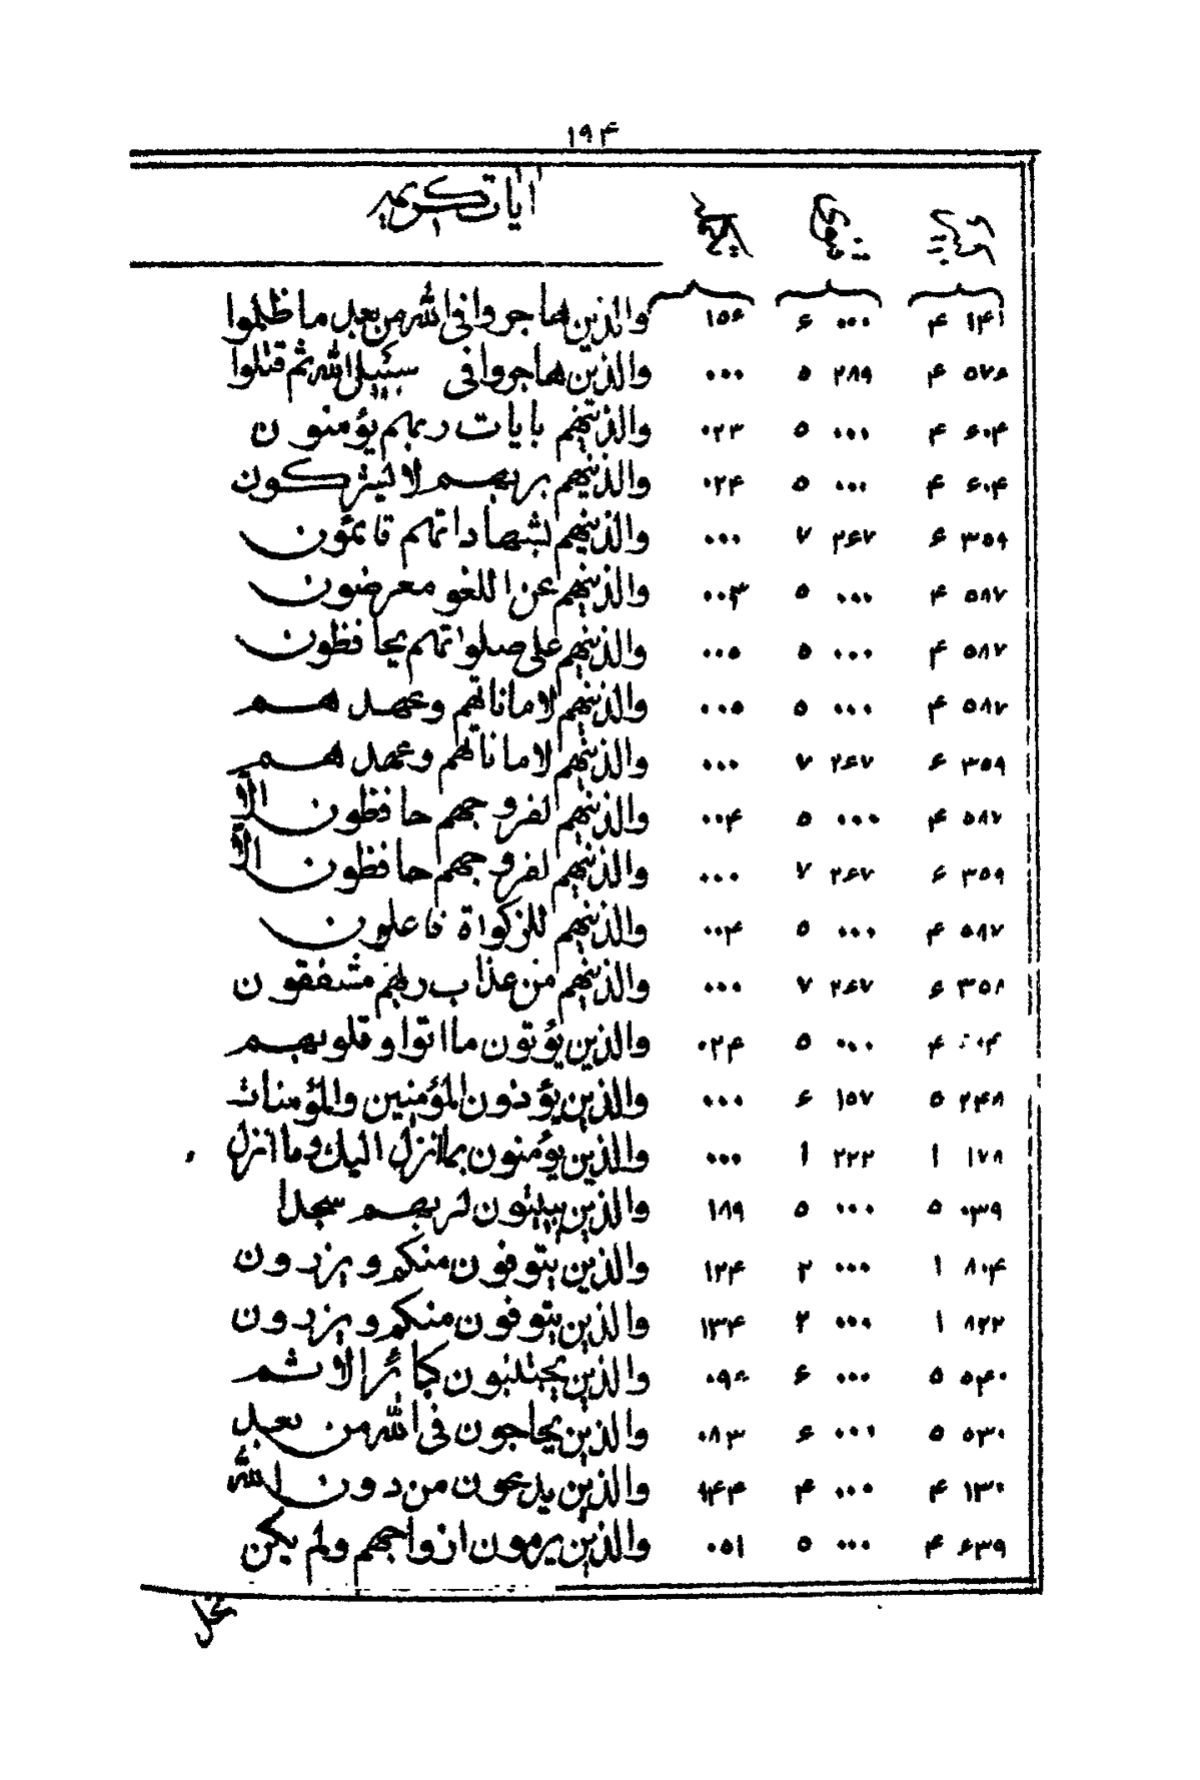 ۱۹۴
آیات کریمه
۱۴۱ ۴ ۰۰۰ ۶ ۱۵۶ والذین هاجروا فی الله من بعد ما ظلموا
۵۷۶ ۴ ۲۸۹ ۵ ۰۰۰ والذین هاجروا فی سبیل الله ثم قتلوا
۶۰۴ ۴ ۰۰۰ ۵ ۰۲۳ والذینهم بایات ربهم یؤمنون
۶۰۴ ۴ ۰۰۰ ۵ ۰۲۴ والذینهم بربهم لا یشرکون
۳۵۹ ۶ ۲۶۷ ۷ ۰۰۰ والذینهم بشهاداتهم قائمون
۵۸۷ ۴ ۰۰۰ ۵ ۰۰۳ والذینهم عن اللغو معرضون
۵۸۷ ۴ ۰۰۰ ۵ ۰۰۵ والذینهم علی صلواتهم یحافظون
۵۸۷ ۴ ۰۰۰ ۵ ۰۰۵ والذینهم لاماناتهم وعهدهم
۳۵۹ ۶ ۲۶۷ ۷ ۰۰۰ والذینهم لاماناتهم وعهدهم
۵۸۷ ۴ ۰۰۰ ۵ ۰۰۴ والذینهم لفروجهم حافظون الا
۳۵۹ ۶ ۲۶۷ ۷ ۰۰۰ والذینهم لفروجهم حافظون الا
۵۸۷ ۴ ۰۰۰ ۵ ۰۰۴ والذینهم للزکواة فاعلون
۳۵۸ ۶ ۲۶۷ ۷ ۰۰۰ والذینهم من عذاب ربهم مشفقون
۴ ۰۰۰ ۵ ۰۲۴ والذین یؤتون ما اتوا وقلوبهم
۲۴۸ ۵ ۱۵۷ ۶ ۰۰۰ والذین یؤذون المؤمنین والمؤمنات
۱۷۸ ۱ ۲۲۲ ۱ ۰۰۰ والذین یؤمنون بما انزل الیک وما انزل
۰۳۹ ۵ ۰۰۰ ۵ ۱۸۹ والذین یبیتون لربهم سجدا
۸۰۴ ۱ ۰۰۰ ۲ ۱۲۴ والذین یتوفون منکم ویذرون
۸۲۲ ۱ ۰۰۰ ۲ ۱۳۴ والذین یتوفون منکم ویذرون
۵۴۰ ۵ ۰۰۰ ۶ والذین یجتنبون کبائر الاثم
۵۳۰ ۵ ۰۰۱ ۶ ۰۸۳ والذین یحاجون فی الله من بعد
۱۳۰ ۴ ۰۰۰ ۴ ۱۴۴ والذین یدعون من دون الله
۶۳۹ ۴ ۰۰۰ ۵ ۰۵۱ والذین یرمون ازواجهم ولم یکن